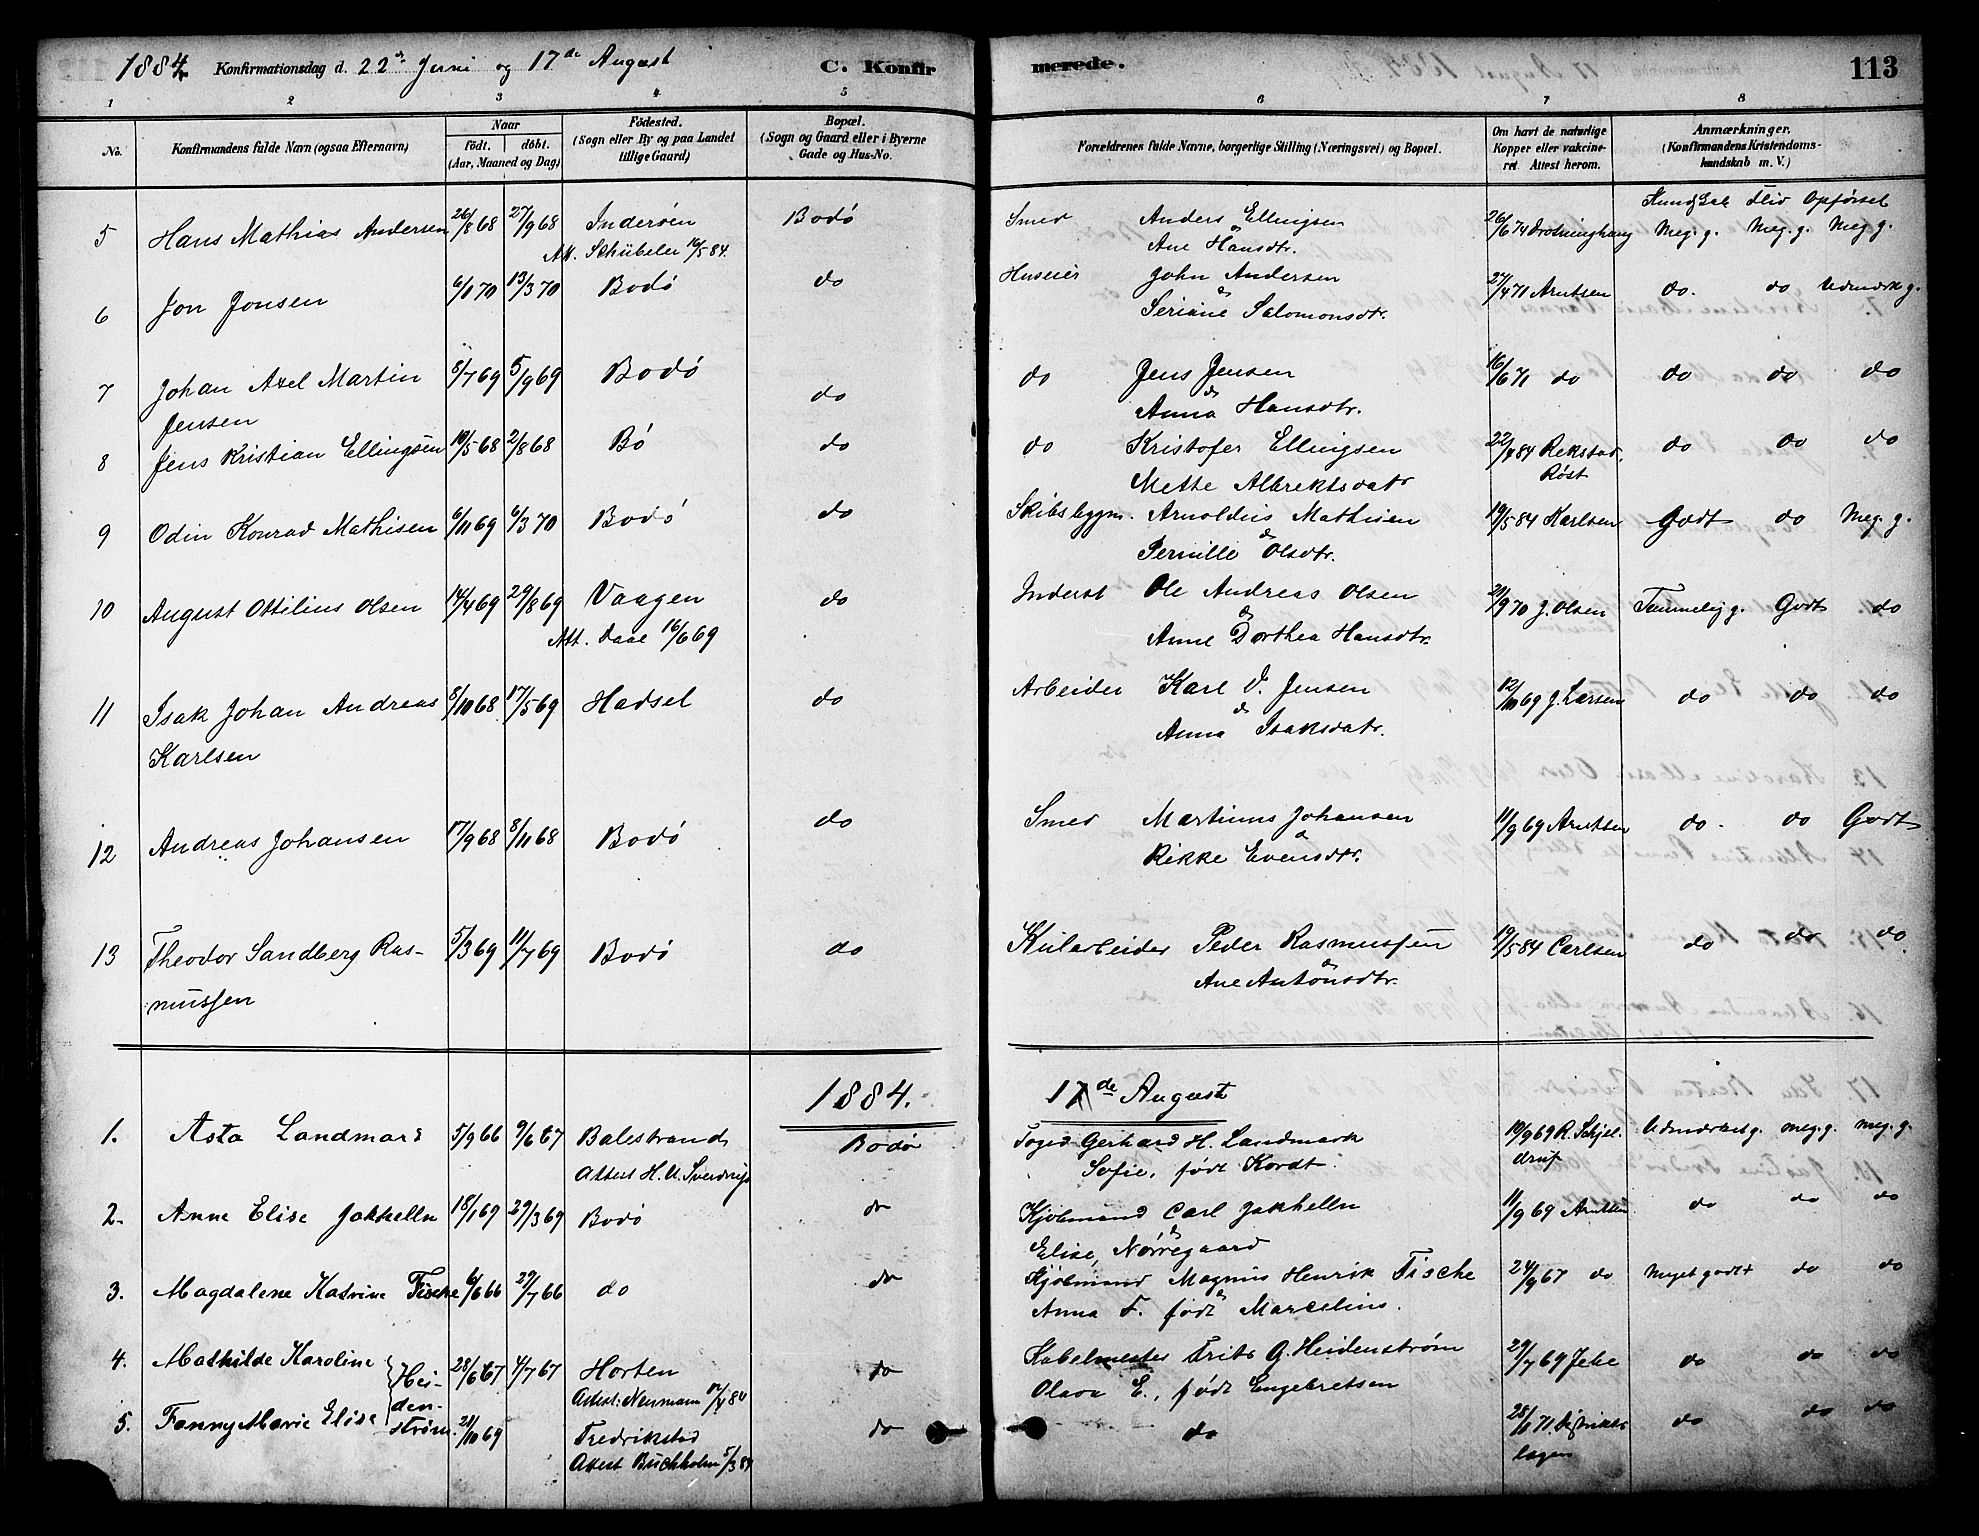 1884 Konfirmationsdag d. 22de Juni og 17de August C. Konfir merede. 113
1 2 3 4 5 6 7 8
No. Konfirmandens fulde Navn (ogsaa Efternavn) Naar født. døbt. (Aar, Maaned og Dag) Fødested. (Sogn eller By og paa Landet tillige Gaard) Bopæl. (Sogn og Gaard eller i Byerne Gade og Hus-No. Forældrenes fulde Navne, borgerlige Stilling (Næringsvei) og Bopæl. Om havt de naturlige Kopper eller vakcineret. Attest herom. Anmærkninger. (Konfirmandens Kristendomskundskab m. V.)
Kundskab Flid Opførsel
5 Hans Mathias Andersen 26/8 68 27/9 68 Inderøen Bodø Smed Anders Ellingsen 26/6 74 Meg. g. Meg. g. Meg g.
Att. Schübeler 16/5 84. & Ane Hansdtr.
6 Jon Jonsen 6/1 70 13/3 70 Bodø do Huseier John Andersen 27/4 71 Arntsen do. do Udmærk g.
& Seriane Salomonsdtr.
7 Johan Axel Martin 8/7 69 5/9 69 Bodø do do Jens Jensen 16/6 71 do do do do
Jensen & Anna Hansdtr.
8 Jens Kristian Ellingsen 10/5 68 2/8 68 Bø do do Kristofer Ellingsen 22/4 84 Rekstad, do do do
Mette Albrektsdatr Røst
9 Odin Konrad Mathisen 6/11 69 6/3 70 Bodø do Skibsbygm. Arnoldus Mathisen 19/5 84 Karlsen Godt do Meg. g.
& Pernille Olsdtr.
10 August Ottilius Olsen 14/4 69 29/8 69 Vaagen do Inderst Ole Andreas Olsen 20/9 70 J. Olsen Temmelig g. Godt do
Att. Daae 16/6 69 & Anne Dorthea Hansdtr.
11 Isak Johan Andreas 8/10 68 17/5 69 Hadsel do Arbeider Karl J. Jensen 12/10 69 J. Larsen do do do
Karlsen & Anna Isaksdatr.
12 Andreas Johansen 17/9 68 8/11 68 Bodø do Smed Martinus Johansen 11/9 69 Arntsen do. do Godt
& Rikke Evensdtr.
13 Theodor Sandberg Ras- 5/3 69 11/7 69 Bodø do Kularbeider Peder Rasmussen 19/5 84 Carlsen do do do
mussen & Ane Antonsdtr.
1884. 17de August
1. Asta Landmark 5/9 66 9/6 67 Balestrand Bodø Foged Gerhard H. Landmark 10/9 69 R. Schjel- Udmærket g. meg. g. meg. g.
Attest H. U. Sverdrup Sofie, født Kordt. drup
2. Anne Elise Jakhelln 18/1 69 29/3 69 Bodø do Kjøbmand Carl Jakhelln 11/9 69 Arntsen do do do
& Elise, Nørregaard
3. Magdalene Katrine Fische 6/6 66 29/7 66 do do Kjøbmand Magnus Henrik Fische 24/9 67 do Meget godt do do
& Anna F. født Marcelius.
4. Mathilde Karoline Hei- 28/6 67 4/7 67 Horten do Kabelmester Frits G. Heidenstrøm 29/7 69 do do do
den- Attest: Neumann 17/4 84 Olava E., født Engebretsen
5. Fanny Marie Elise strøm. 21/10 69 Fredrikstad do do 28/1 71. Distrikts- do do do
Attest Buchholm 5/3 84 lægen